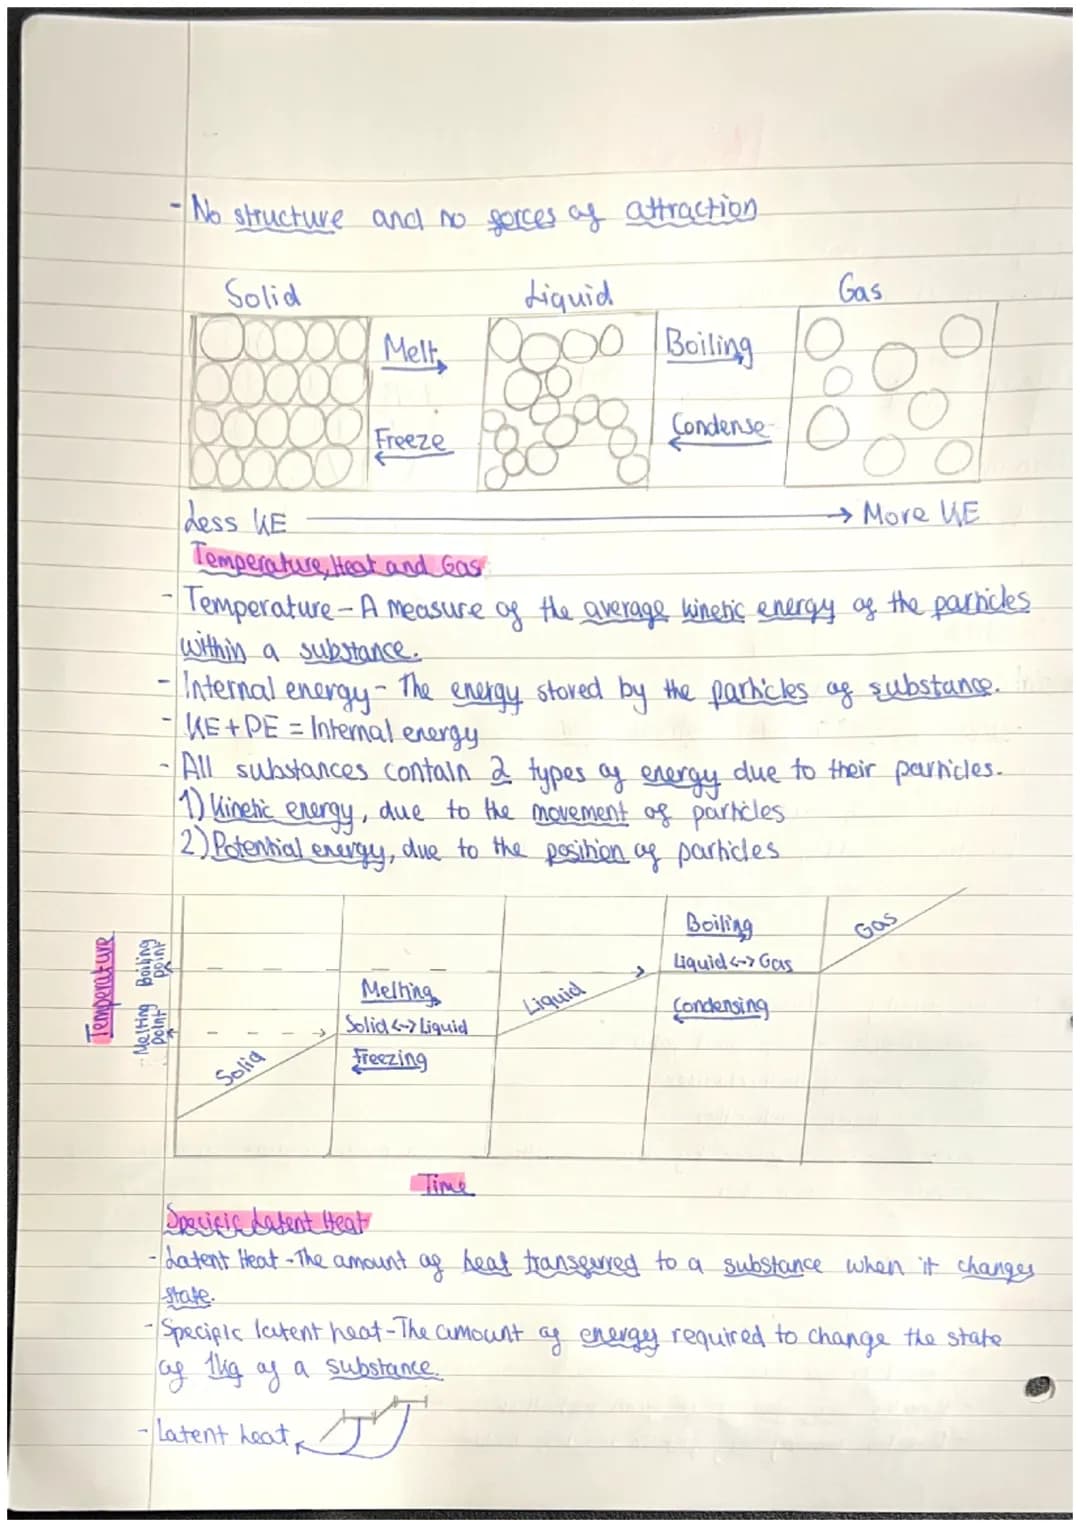 - No structure and no forces of attraction
Solid Liquid Gas
Melt Boiling
Freeze Condense
Less KE → More KE
Temperature, Heat and Gas
- Temperature - A measure of the average kinetic energy of the particles
within a substance.
- Internal energy - The energy stored by the particles of substance.
- KE + PE = Internal energy
- All substances contain 2 types of energy due to their particles.
1) Kinetic energy, due to the movement of particles
2) Potential energy, due to the position of particles
Temperature
Boiling point
Melting point
Boiling
Liquid <-> Gas
Condensing
Gas
Melting
Solid <-> Liquid
Freezing
Liquid
Solid
Time
Specific Latent Heat
- Latent Heat - The amount of heat transferred to a substance when it changes
state.
- Specific latent heat - The amount of energy required to change the state
of 1kg of a substance.
- Latent heat